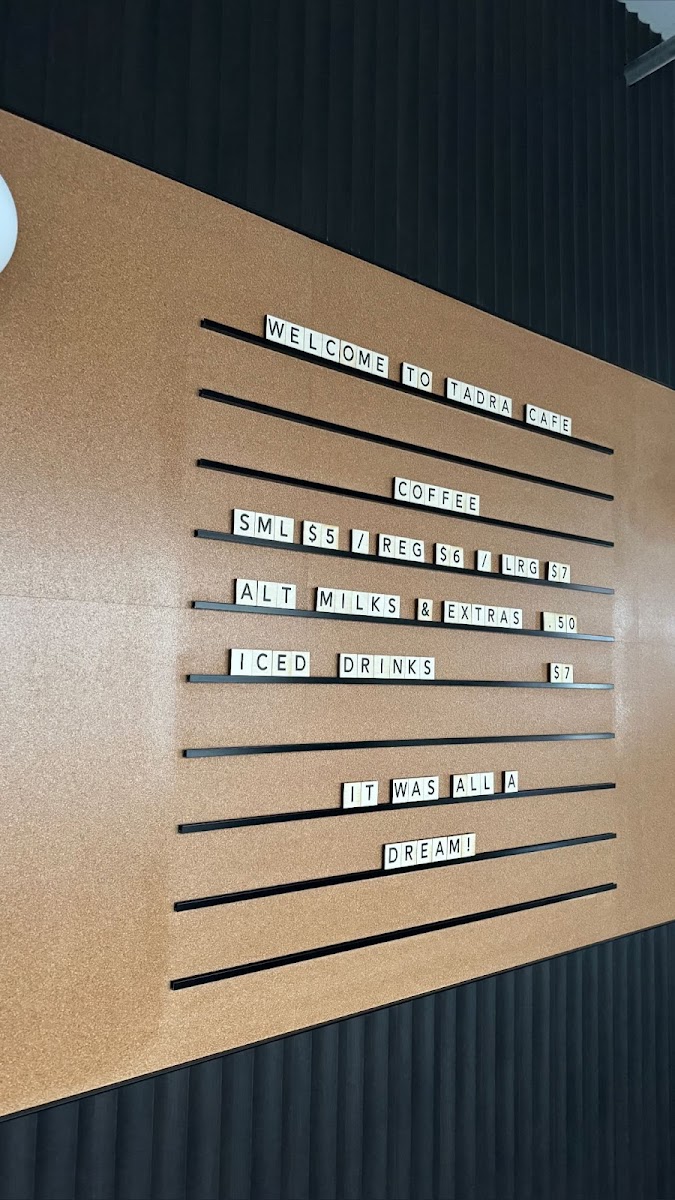 WELCOME TO TADRA CAFE
COFFEE
SML $5 / REG $6 / LRG $7
ALT MILKS & EXTRAS .50
ICED DRINKS $7
IT WAS ALL A
DREAM!